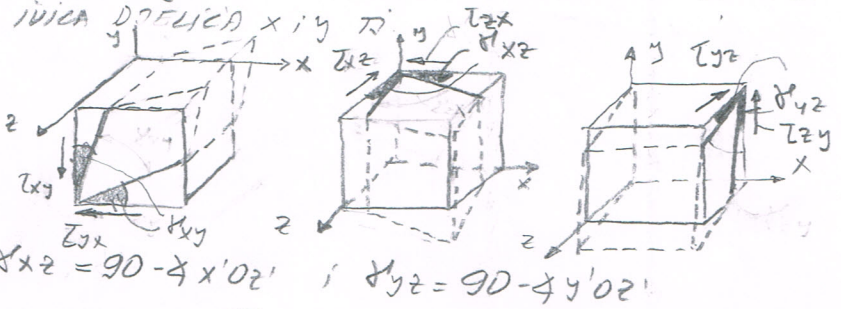 IVICA DJELIĆA x i y π
y x z τxy τyx γxy
τxz y τzx γxz x z
y τyz γyz τzy x z
γxz = 90 - ∢ x'Oz' i γyz = 90 - ∢ y'Oz'